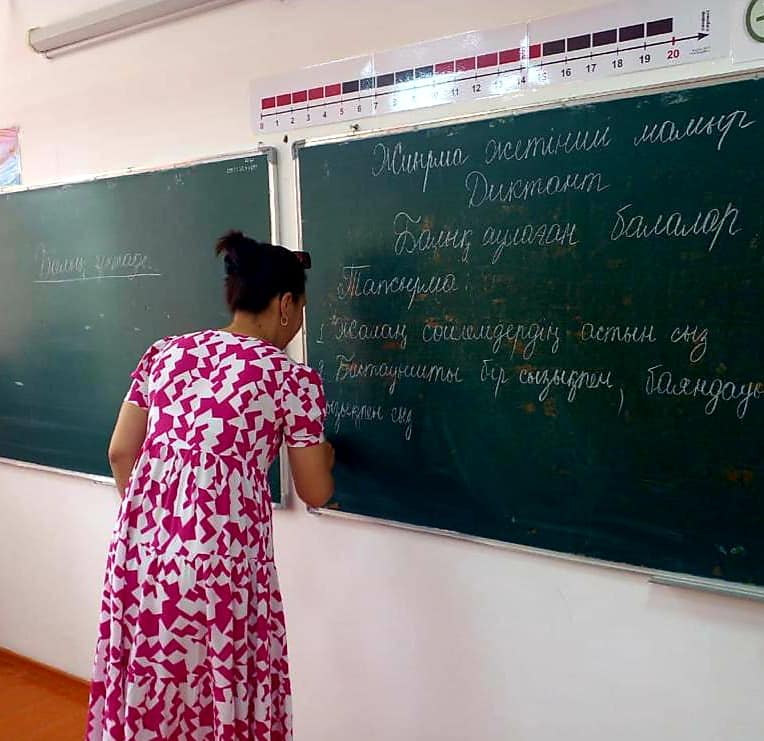 0 1 2 3 4 5 6 7 8 9 10 11 12 13 14 15 16 17 18 19 20
Жиырма жетінші мамыр
Диктант
Балық аулаған балалар
Тапсырма:
1. Жалаң сөйлемдердің астын сыз
2. Бастауышты бір сызықпен, баяндауы
сызықпен сыз